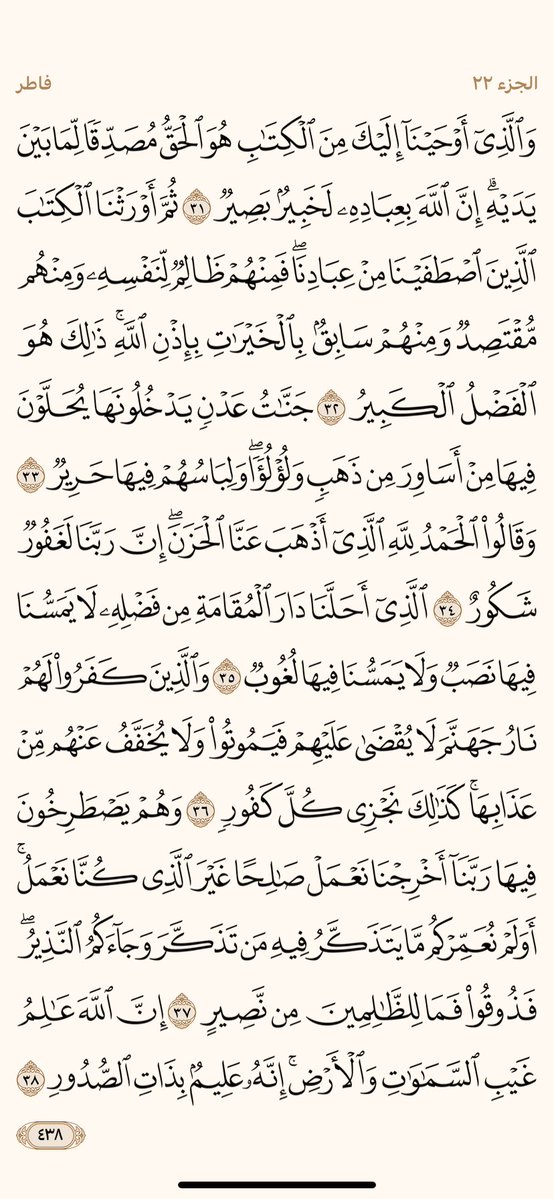 الجزء ٢٢
فاطر
وَٱلَّذِىٓ أَوْحَيْنَآ إِلَيْكَ مِنَ ٱلْكِتَٰبِ هُوَ ٱلْحَقُّ مُصَدِّقًا لِّمَا بَيْنَ
يَدَيْهِۗ إِنَّ ٱللَّهَ بِعِبَادِهِۦ لَخَبِيرٌۢ بَصِيرٌ ٣١ ثُمَّ أَوْرَثْنَا ٱلْكِتَٰبَ
ٱلَّذِينَ ٱصْطَفَيْنَا مِنْ عِبَادِنَاۖ فَمِنْهُمْ ظَالِمٌ لِّنَفْسِهِۦ وَمِنْهُم
مُّقْتَصِدٌ وَمِنْهُمْ سَابِقٌۢ بِٱلْخَيْرَٰتِ بِإِذْنِ ٱللَّهِۚ ذَٰلِكَ هُوَ
ٱلْفَضْلُ ٱلْكَبِيرُ ٣٢ جَنَّٰتُ عَدْنٍ يَدْخُلُونَهَا يُحَلَّوْنَ
فِيهَا مِنْ أَسَاوِرَ مِن ذَهَبٍ وَلُؤْلُؤًاۖ وَلِبَاسُهُمْ فِيهَا حَرِيرٌ ٣٣
وَقَالُوا۟ ٱلْحَمْدُ لِلَّهِ ٱلَّذِىٓ أَذْهَبَ عَنَّا ٱلْحَزَنَۖ إِنَّ رَبَّنَا لَغَفُورٌ
شَكُورٌ ٣٤ ٱلَّذِىٓ أَحَلَّنَا دَارَ ٱلْمُقَامَةِ مِن فَضْلِهِۦ لَا يَمَسُّنَا
فِيهَا نَصَبٌ وَلَا يَمَسُّنَا فِيهَا لُغُوبٌ ٣٥ وَٱلَّذِينَ كَفَرُوا۟ لَهُمْ
نَارُ جَهَنَّمَ لَا يُقْضَىٰ عَلَيْهِمْ فَيَمُوتُوا۟ وَلَا يُخَفَّفُ عَنْهُم مِّنْ
عَذَابِهَاۚ كَذَٰلِكَ نَجْزِى كُلَّ كَفُورٍ ٣٦ وَهُمْ يَصْطَرِخُونَ
فِيهَا رَبَّنَآ أَخْرِجْنَا نَعْمَلْ صَٰلِحًا غَيْرَ ٱلَّذِى كُنَّا نَعْمَلُۚ
أَوَلَمْ نُعَمِّرْكُم مَّا يَتَذَكَّرُ فِيهِ مَن تَذَكَّرَ وَجَآءَكُمُ ٱلنَّذِيرُۖ
فَذُوقُوا۟ فَمَا لِلظَّٰلِمِينَ مِن نَّصِيرٍ ٣٧ إِنَّ ٱللَّهَ عَٰلِمُ
غَيْبِ ٱلسَّمَٰوَٰتِ وَٱلْأَرْضِۚ إِنَّهُۥ عَلِيمٌۢ بِذَاتِ ٱلصُّدُورِ ٣٨
٤٣٨